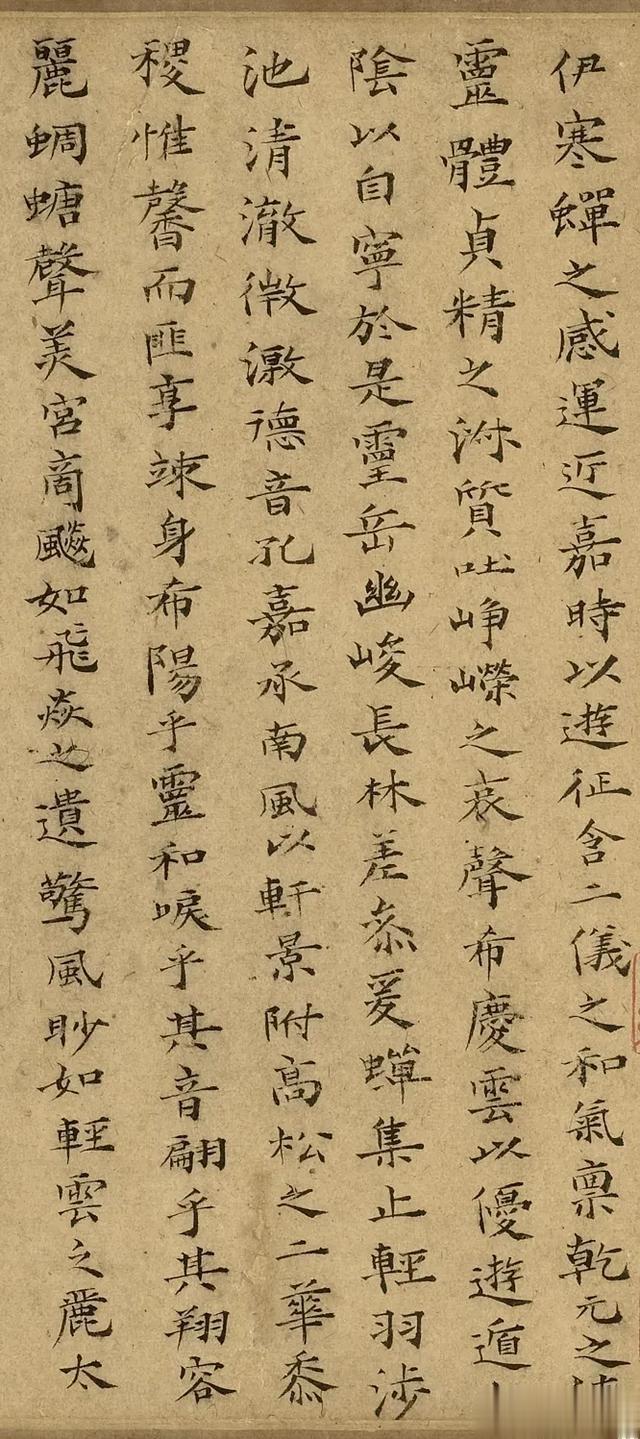 伊寒蟬之感運近嘉時以遊征含二儀之和氣禀乾元之
靈體貞精之淑質吐崢嶸之哀聲希慶雲以優遊遁
陰以自寧於是靈岳幽峻長林差叅爰蟬集止輕羽涉
池清澈微激德音孔嘉承南風以軒景附高松之二華黍
稷惟馨而匪享竦身希陽乎靈和唳乎其音翩乎其翔容
麗蜩螗聲美宮商飈如飛焱之遺驚風眇如輕雲之麗太